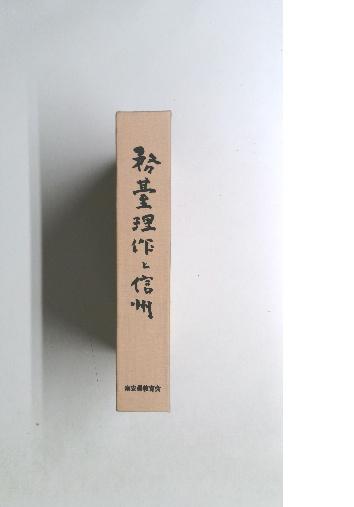 務臺理作と信州
南安曇教育会